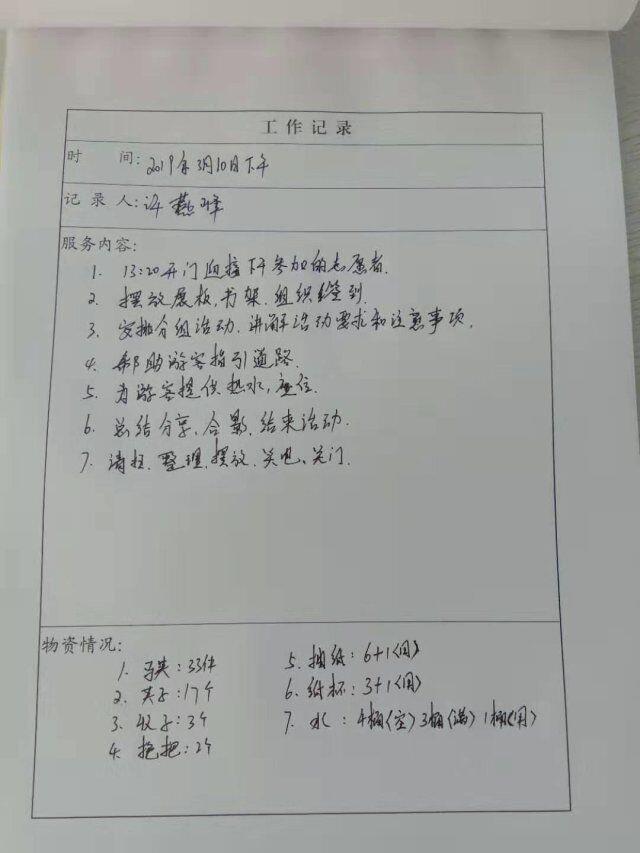 工作记录
时 间: 2019年3月10日下午
记 录 人: 许燕峰
服务内容:
1. 13:20开门迎接下午参加的志愿者.
2. 摆放展板、书架、组织签到.
3. 安排分组活动、讲解活动要求和注意事项.
4. 帮助游客指引道路.
5. 为游客提供热水,座位.
6. 总结分享、合影、结束活动.
7. 清扫、整理、摆放、关电、关门.
物资情况:
1. 马夹:33件
2. 夹子:17个
3. 3个
4. 拖把:2个
5. 抽纸:6+1(用)
6. 纸杯:3+1(用)
7. 水:4桶(空)3桶(满)1桶(用)